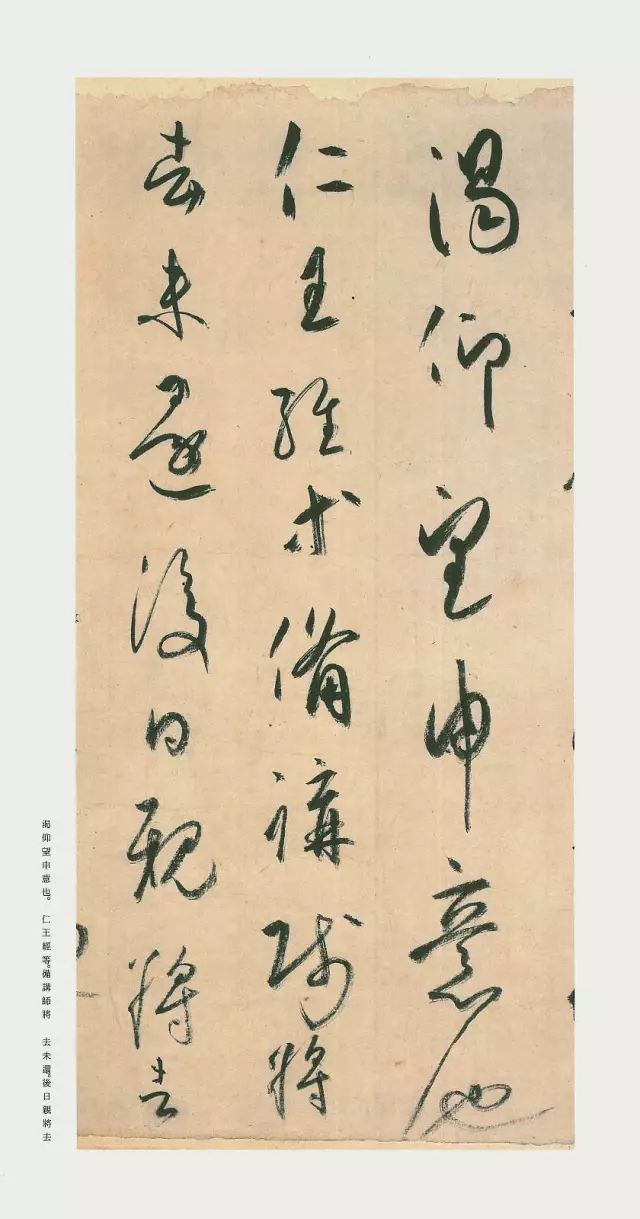 渴仰望申意也
仁王經等備講師將
去未還後日親將去
渴仰望申意也。 仁王經等。備講師將 去未還。後日親將去